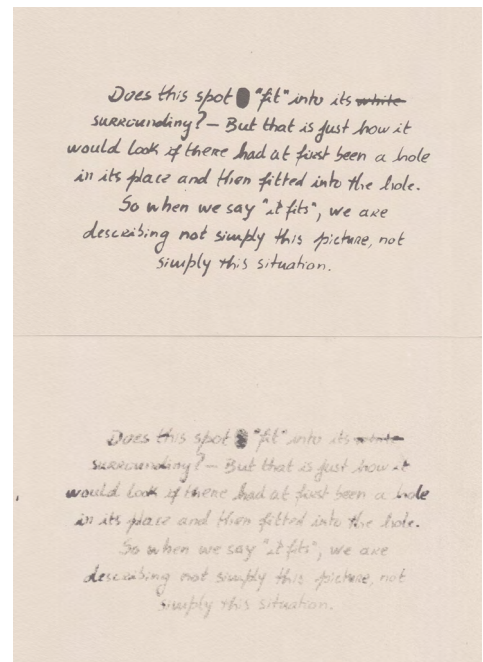 Does this spot "fit" into its ~~white~~
surrounding? — But that is just how it
would look if there had at first been a hole
in its place and then fitted into the hole.
So when we say "it fits", we are
describing not simply this picture, not
simply this situation.
Does this spot "fit" into its ~~white~~
surrounding? — But that is just how it
would look if there had at first been a hole
in its place and then fitted into the hole.
So when we say "it fits", we are
describing not simply this picture, not
simply this situation.